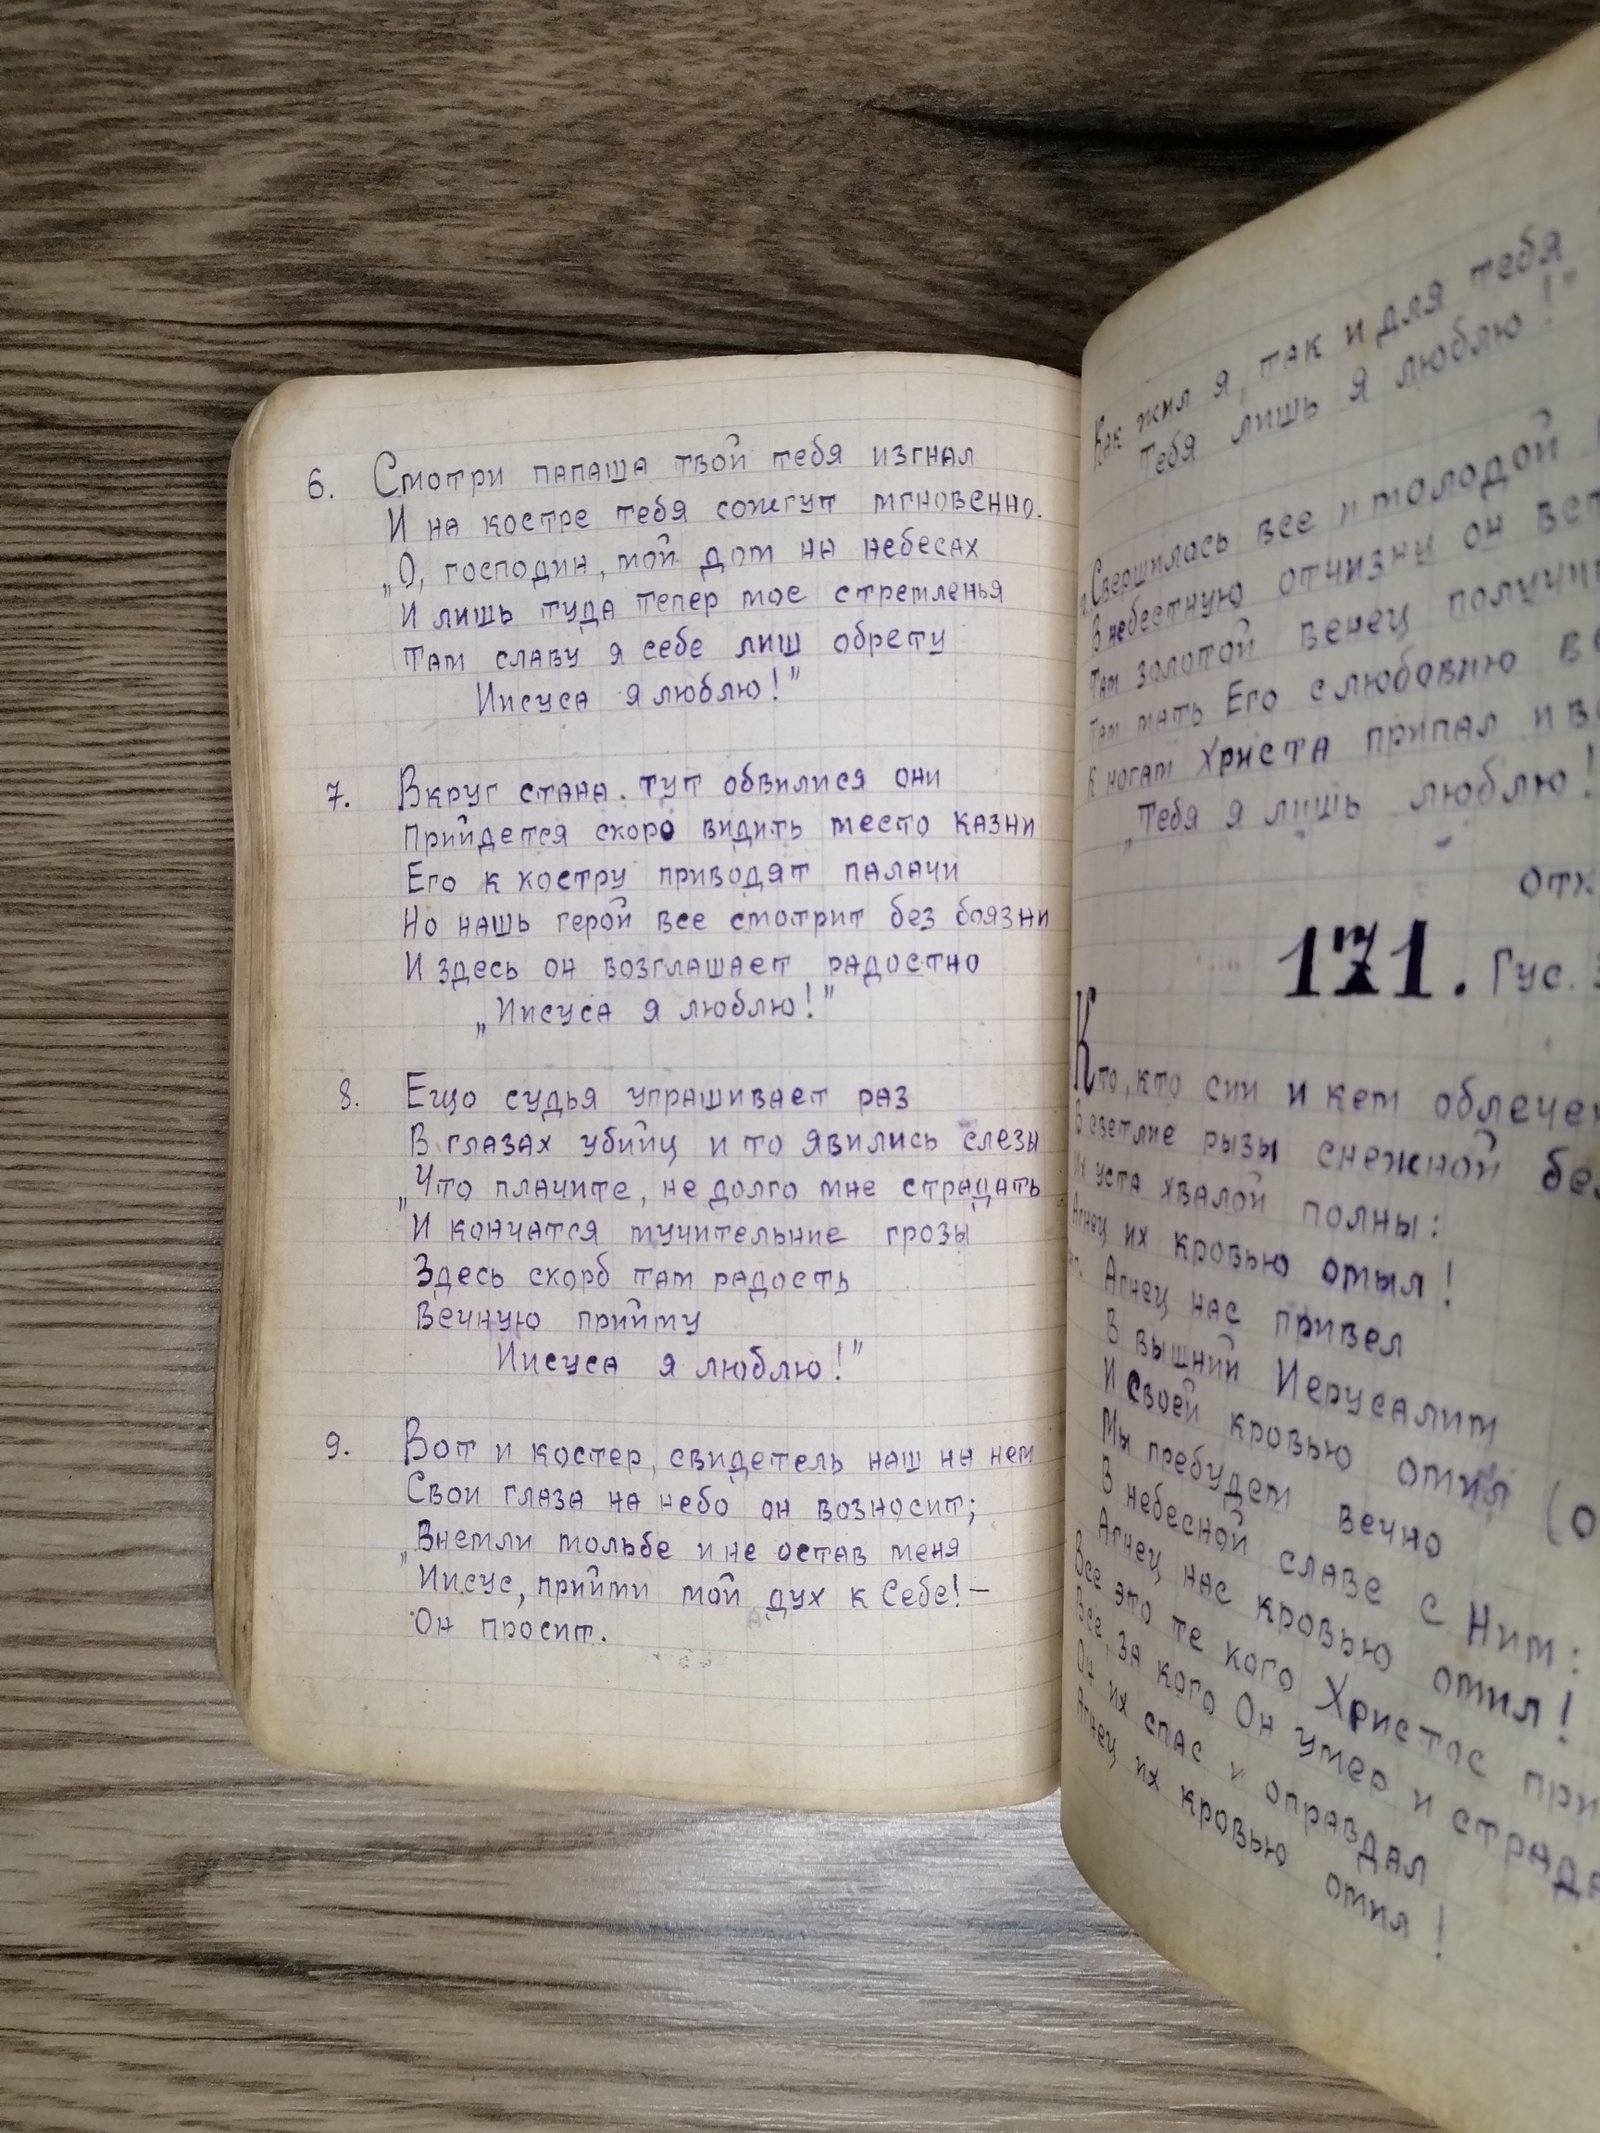 6. Смотри папаша твой тебя изгнал
И на костре тебя сожгут мгновенно.
„О, господин, мой дом на небесах
И лишь туда тепер мое стремленья
Там славу я себе лиш обрету
Иисуса я люблю!"
7. Вкруг стана. тут обвилися они
Прийдется скоро видить место казни
Его к костру приводят палачи
Но нашь герой все смотрит без боязни
И здесь он возглашает радостно
„Иисуса я люблю!"
8. Ещо судья упрашивает раз
В глазах убийц и то явились слезы
„Что плачите, не долго мне страдать
И кончатся мучительние грозы
Здесь скорб там радость
вечную прийму
Иисуса я люблю!"
9. Вот и костер, свидетель наш на нем
Свои глаза на небо он возносит;
Внемли мольбе и не остав меня
„Иисус, прийми мой дух к Себе! –
Он просит.
Как жил я, так и для тебя
Тебя лишь я люблю!"
Свершилась все и молодой
В небестную отчизну он
Там золотой венец
Там мать Его с любовию
К ногам Христа припал и
„Тебя я лишь люблю!
171. Гус.
Кто, кто сии и кем
В светлие рызы снежной
Их уста хвалой полны:
Агнец их кровью омыл!
Агнец нас привел
В вышний Иерусалим
И Своей кровью омил
Мы пребудем вечно
В небесной славе с Ним:
Агнец нас кровью омил!
Все это те кого Христос
Все, за кого Он умер и
Он их спас и оправдал
Агнец их кровью омил!